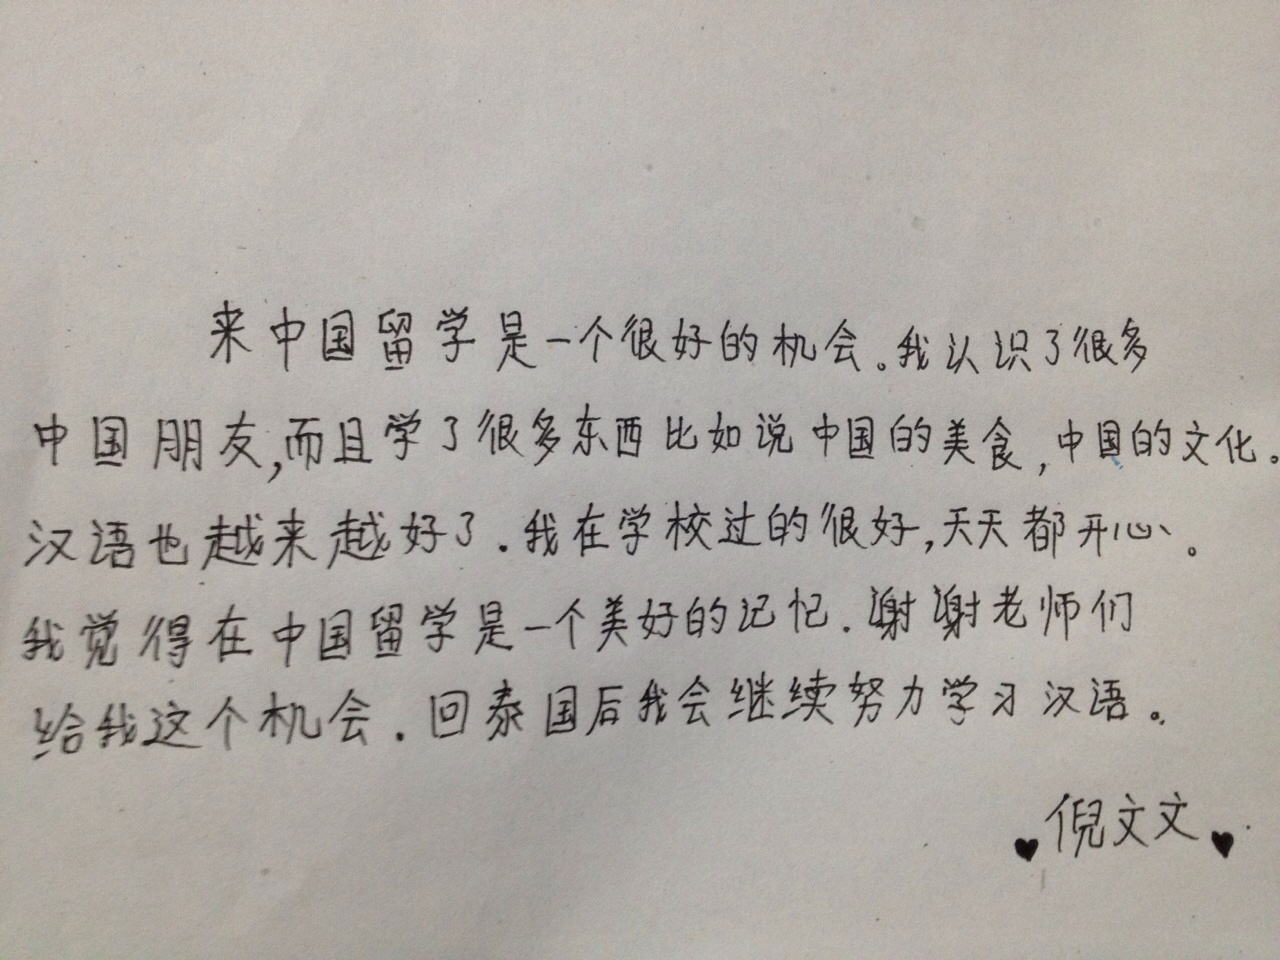 来中国留学是一个很好的机会。我认识了很多
中国朋友,而且学了很多东西比如说中国的美食,中国的文化。
汉语也越来越好了.我在学校过的很好,天天都开心。
我觉得在中国留学是一个美好的记忆.谢谢老师们
给我这个机会.回泰国后我会继续努力学习汉语。
♥倪文文♥